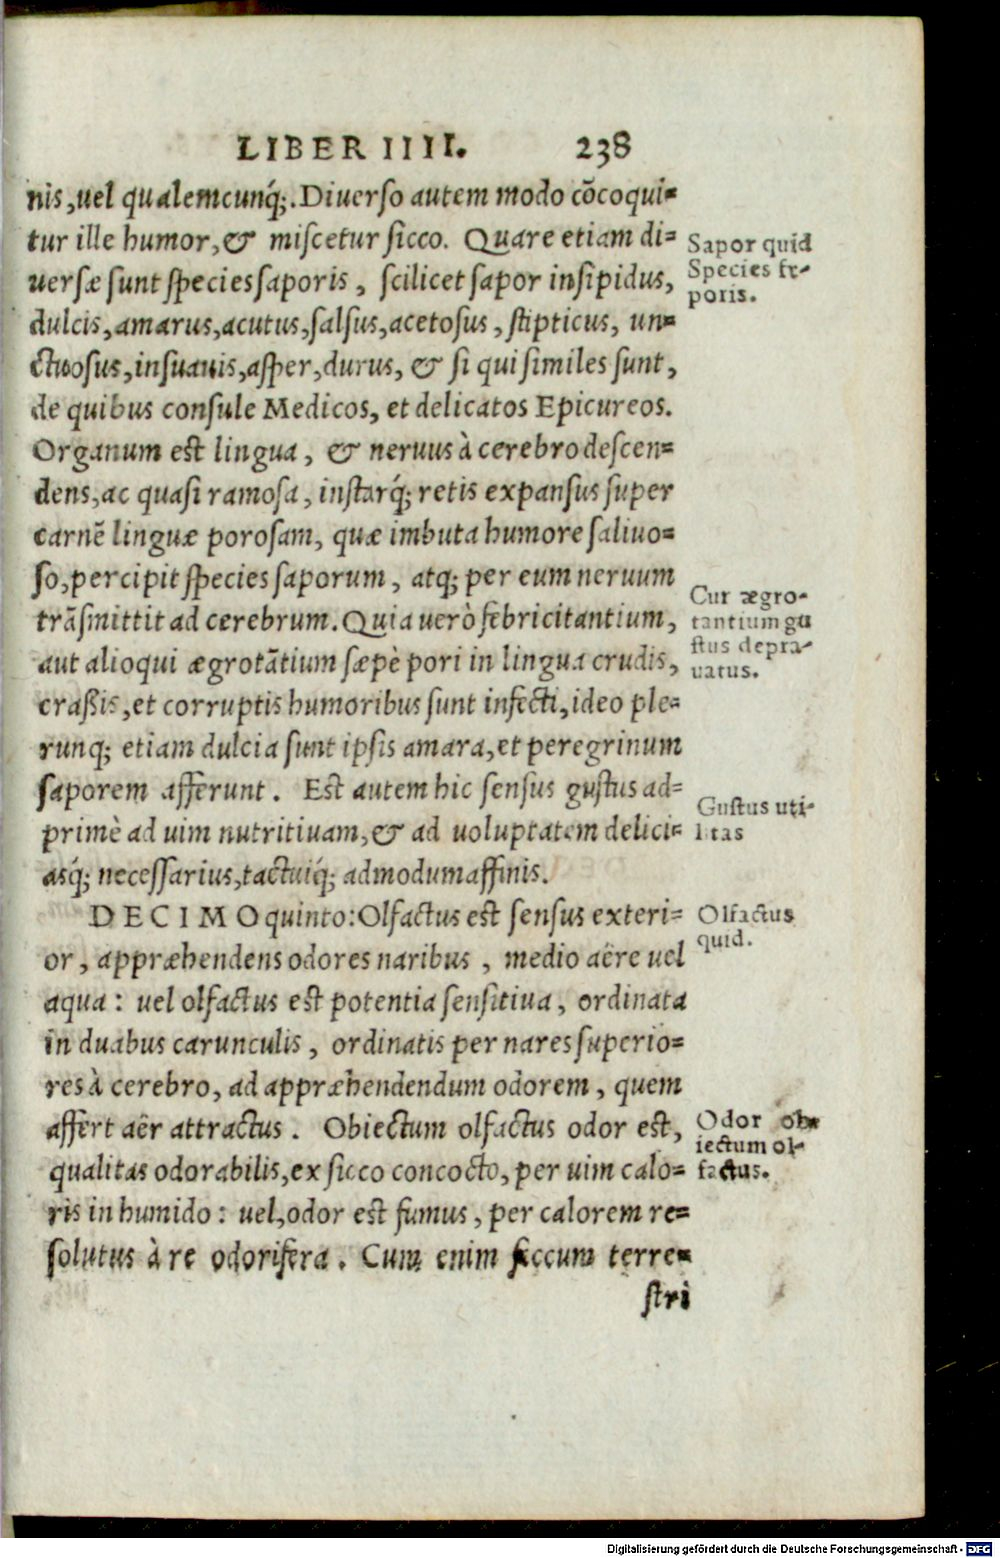 LIBER IIII. 238
nis, uel qualemcunq́;. Diuerso autem modo cõcoqui=
tur ille humor, & miscetur sicco. Quare etiam di=
uersæ sunt species saporis, scilicet sapor insipidus,
dulcis, amarus, acutus, salsus, acetosus, stipticus, un=
ctuosus, insuauis, asper, durus, & si qui similes sunt,
de quibus consule Medicos, et delicatos Epicureos.
Organum est lingua, & neruus à cerebro descen=
dens, ac quasi ramosa, instarq́; retis expansus super
carnẽ linguæ porosam, quæ imbuta humore saliuo=
so, percipit species saporum, atq; per eum neruum
trãsmittit ad cerebrum. Quia uerò febricitantium,
aut alioqui ægrotãtium sæpè pori in lingua crudis,
craßis, et corruptis humoribus sunt infecti, ideo ple=
runq; etiam dulcia sunt ipsis amara, et peregrinum
saporem afferunt. Est autem hic sensus gustus ad=
primè ad uim nutritiuam, & ad uoluptatem delici=
asq́; necessarius, tactuiq́; admodum affinis.
DECIMO quinto: Olfactus est sensus exteri=
or, appræhendens odores naribus, medio aëre uel
aqua: uel olfactus est potentia sensitiua, ordinata
in duabus carunculis, ordinatis per nares superio=
res à cerebro, ad appræhendendum odorem, quem
affert aër attractus. Obiectum olfactus odor est,
qualitas odorabilis, ex sicco concocto, per uim calo=
ris in humido: uel, odor est fumus, per calorem re=
solutus à re odorifera. Cum enim siccum terre=
stri
Sapor quid
Species sa-
poris.
Cur ægro-
tantium gu
stus depra-
uatus.
Gustus uti-
litas
Olfactus
quid.
Odor ob-
iectum ol-
factus.
Digitalisierung gefördert durch die Deutsche Forschungsgemeinschaft - DFG